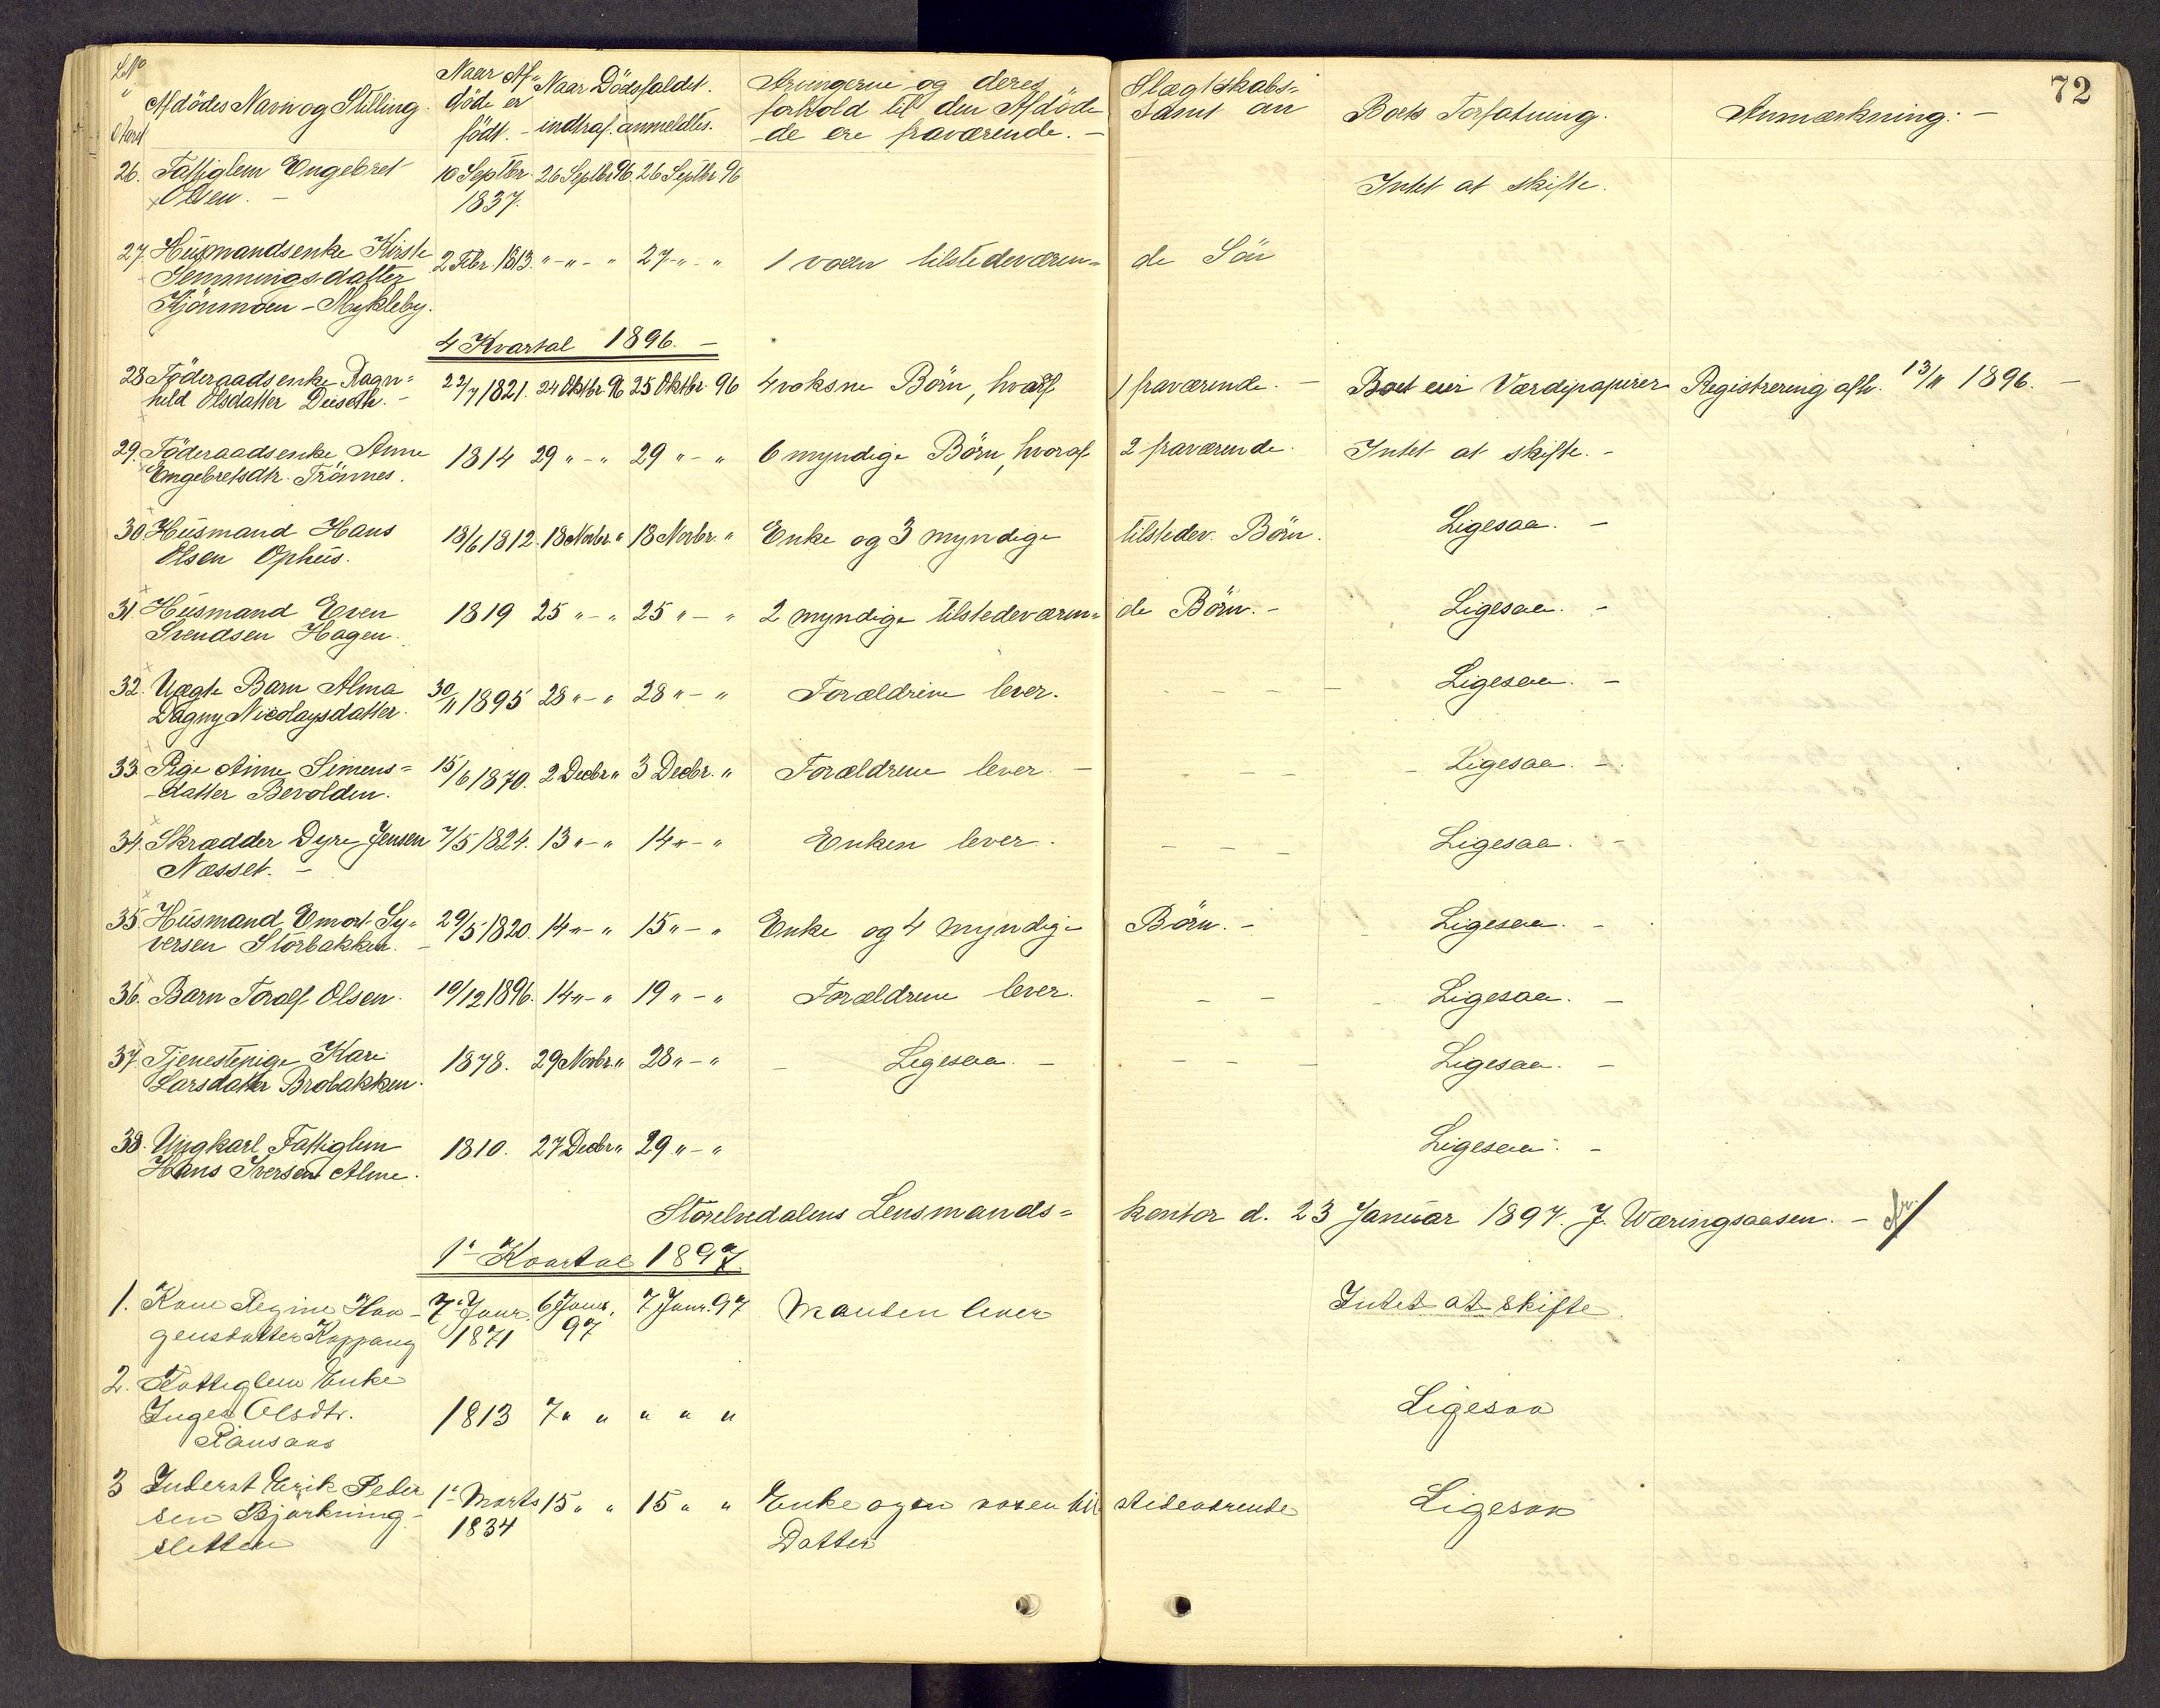 72
LNo
"
Afdödes Navn og Stilling.
Naar Af-
döde er
födt. -
Naar Dödsfaldet.
indtraf. anmeldtes.
Arvingerne og deres Slægtskabs=
forhold til den Afdöde samt om
de ere fraværende. -
Boets Forfatning.
Anmærkning: -
26. Fattiglem Engebret 10 Septbr. 26 Septbr 96. 26 Septbr. 96 Intet at skifte.
Olsen. - 1837.
27. Husmandsenke Kirste 2 Febr. 1813. " - " - " 27 - " - " 1 voxen tilstedeværen= de Sön
Hemmingsdatter
Kjönmoen - Mykleby.
4 Kvartal 1896. -
28 Föderaadsenke Ragn= 22/7 1821. 24 Oktbr. 96 25 Oktbr. 96 4 voksne Börn, hvoraf 1 fraværende. - Boet eier Værdipapirer Registrering afh. 13/11 1896. -
hild Olsdatter Deiseth. -
29. Föderaadsenke Anne 1814 29 " - " 29 " - " 6 myndige Börn, hvoraf 2 fraværende. Intet at skifte. -
Engebretsdtr. Trönnes.
30. Husmand Hans 18/6 1812. 18 Novbr. " 18 Novbr. " Enke og 3 myndige tilstedev. Börn. Ligesaa. -
Olsen Ophus.
31. Husmand Even 1819 25 " - " 25 " - " 2 myndige tilstedeværen= de Börn. - Ligesaa. -
Svendsen Hagen.
32. Uægte Barn Alma 30/11 1895 28 " - " 28 " - " Forældrene lever. - - - - Ligesaa. -
Dagny Nicolaysdatter.
33. Pige Anne Simens= 15/6 1870. 2 Decbr " 3 Decbr. " Forældrene lever. - - - - - Ligesaa. -
datter Bevolden.
34. Skrædder Dyre Jensen 7/5 1824. 13 " - " 14 " - " Enken lever. - - - - Ligesaa. -
Næsset. -
35. Husmand Emort Sy= 29/5 1820. 14 " - " 15 " - " Enke og 4 myndige Börn. - Ligesaa. -
versen Storbakken. -
36. Barn Toralf Olsen. 10/12 1896. 14 " - " 19 " - " Forældrene lever. - - - Ligesaa. -
37. Tjenestepige Kari 1878. 29 Novbr. " 28 " - " - Ligesaa. - - - - Ligesaa. -
Larsdatter Brobakken.
38. Ungkarl, Fattiglem 1810. 27 Decbr " 29 " - " Ligesaa. -
Hans Iversen Alme.
Storelvedalens Lensmands= kontor d. 23 Januar 1897. J. Wæringsaasen. -
1ste Kvartal 1897.
1. Kone Regine Haa- 7de Janr. 6 Janr. 7 Janr. 97 Manden lever Intet at skifte
gensdatter Koppang 1871 97
2. Fattiglem Enke
Inger Olsdtr. 1813 7 " " " " " Ligesaa
3 Inderst Erik Peder 1ste Marts 15 " " 15 " " Enke og en voxen til stedeværende Ligesaa
sen Bjørkning- 1834 Datter
sletten